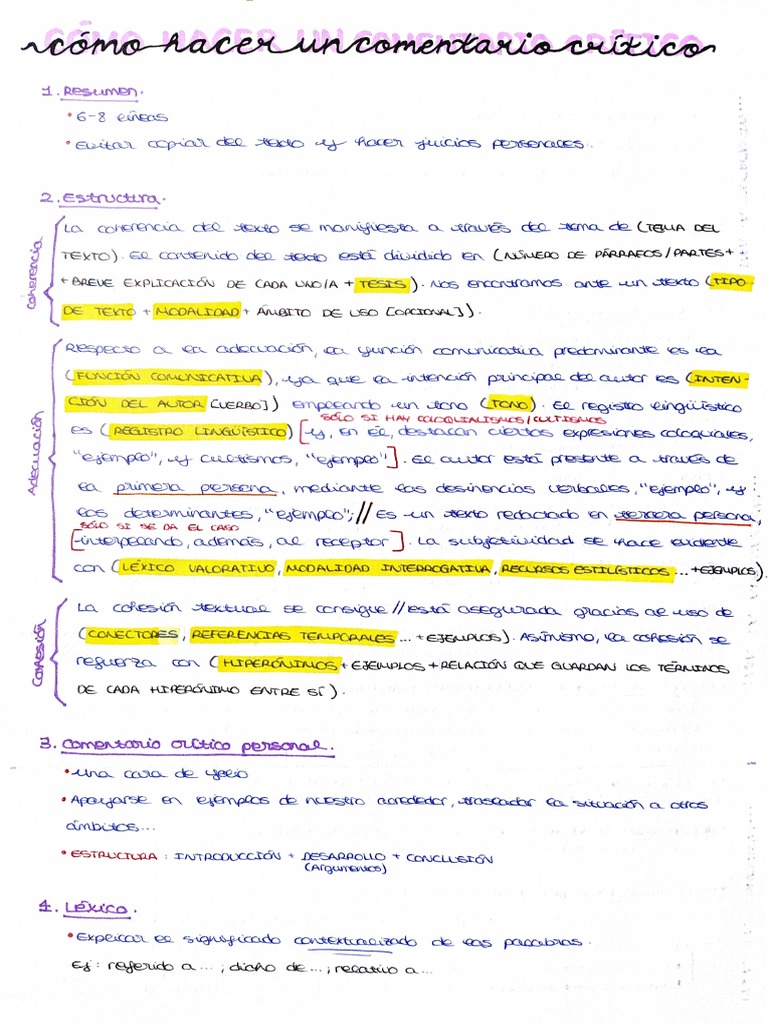 CÓMO HACER UN COMENTARIO CRÍTICO
cómo hacer un comentario crítico
1. Resumen.
• 6-8 líneas
• Evitar copiar del texto y hacer juicios personales.
2. Estructura.
Coherencia
La coherencia del texto se manifiesta a través del tema de (TEMA DEL
TEXTO). El contenido del texto está dividido en (NÚMERO DE PÁRRAFOS/PARTES +
+ BREVE EXPLICACIÓN DE CADA UNO/A + TESIS). Nos encontramos ante un texto (TIPO
DE TEXTO + MODALIDAD + ÁMBITO DE USO [OPCIONAL]).
Adecuación
Respecto a la adecuación, la función comunicativa predominante es la
(FUNCIÓN COMUNICATIVA), ya que la intención principal del autor es (INTEN-
CIÓN DEL AUTOR [VERBO]) empleando un tono (TONO). El registro lingüístico
SÓLO SI HAY COLOQUIALISMOS/CULTISMOS
es (REGISTRO LINGÜÍSTICO) [y, en él, destacan ciertas expresiones coloquiales,
"ejemplo", y cultismos, "ejemplo"]. El autor está presente a través de
la primera persona, mediante las desinencias verbales, "ejemplo", y
los determinantes, "ejemplo"; // Es un texto redactado en tercera persona,
SÓLO SI SE DA EL CASO
[interpelando, además, al receptor]. La subjetividad se hace evidente
con (LÉXICO VALORATIVO, MODALIDAD INTERROGATIVA, RECURSOS ESTILÍSTICOS ... + EJEMPLOS).
Cohesión
La cohesión textual se consigue // está asegurada gracias al uso de
(CONECTORES, REFERENCIAS TEMPORALES ... + EJEMPLOS). Asimismo, la cohesión se
refuerza con (HIPERÓNIMOS + EJEMPLOS + RELACIÓN QUE GUARDAN LOS TÉRMINOS
DE CADA HIPERÓNIMO ENTRE SÍ).
3. Comentario crítico personal.
• Una cara de folio
• Apoyarse en ejemplos de nuestro alrededor, trasladar la situación a otros
ámbitos...
• ESTRUCTURA: INTRODUCCIÓN + DESARROLLO + CONCLUSIÓN
(Argumentos)
4. Léxico.
• Explicar el significado contextualizado de las palabras.
Ej: referido a ...; dicho de ...; relativo a...